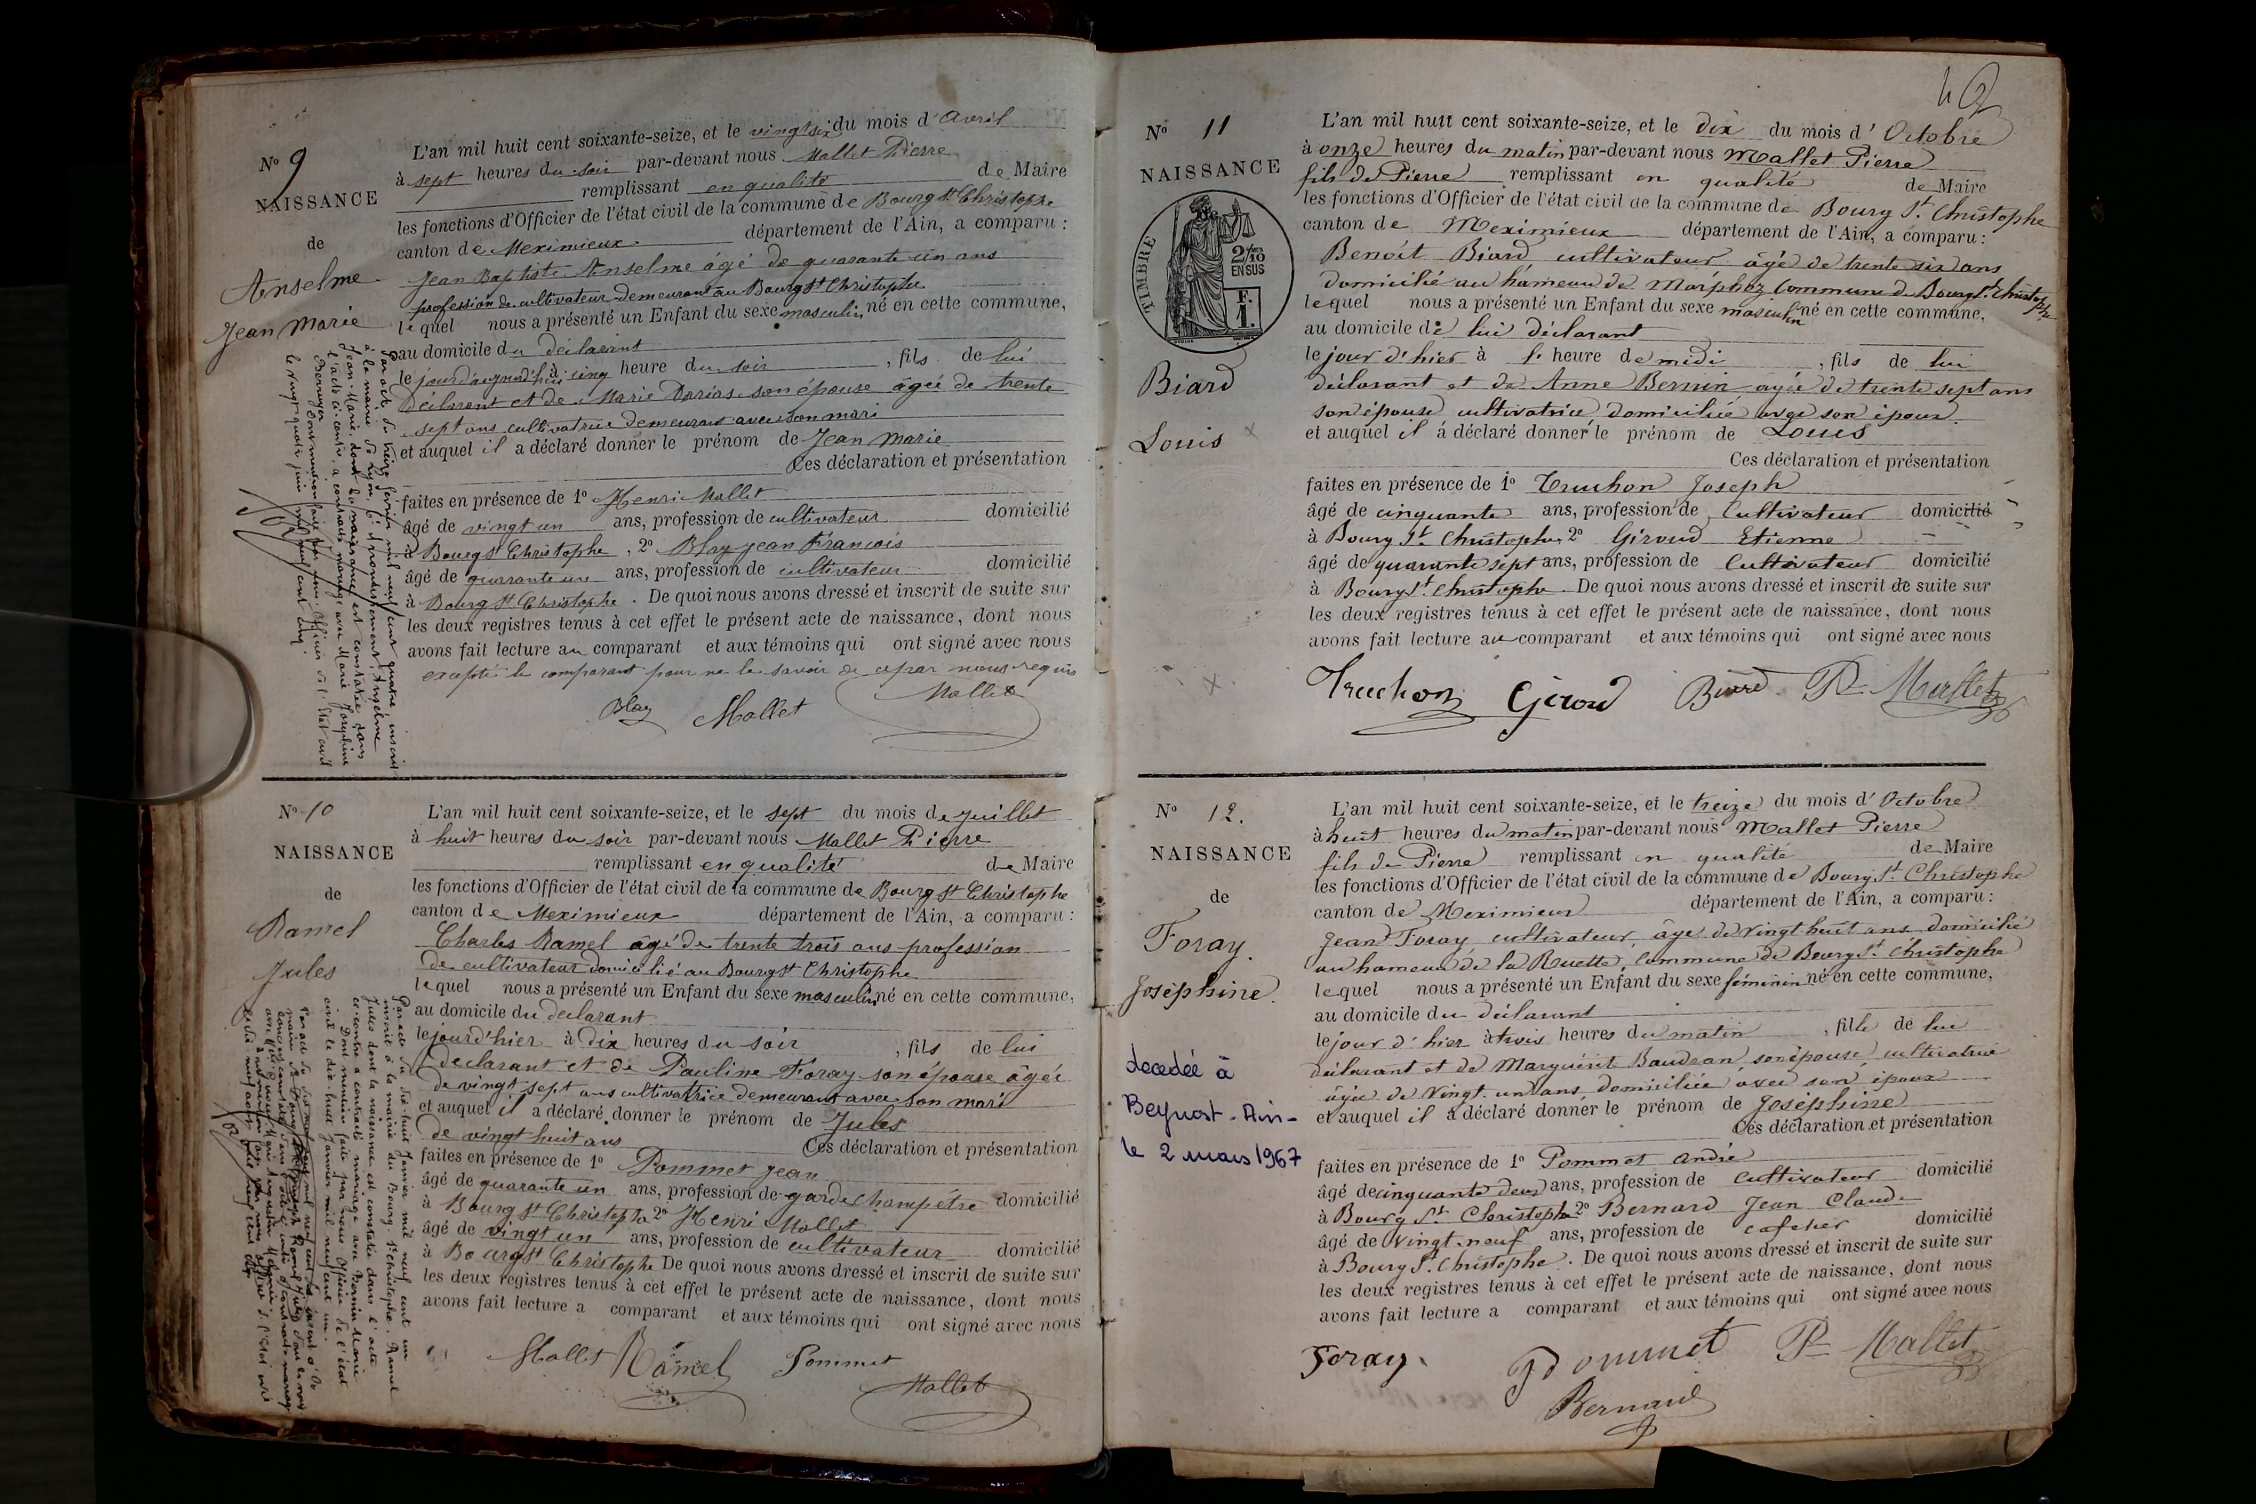 No 9
NAISSANCE
de
Anselme
Jean Marie
L'an mil huit cent soixante-seize, et le vingt six du mois d'Avril
à sept heures du soir par-devant nous Mallet Pierre
remplissant en qualité de Maire
les fonctions d'Officier de l'état civil de la commune de Bourg St Christophe
canton de Meximieux département de l'Ain, a comparu :
Jean Baptiste Anselme âgé de quarante un ans
profession de cultivateur demeurant au Bourg St Christophe
lequel nous a présenté un Enfant du sexe masculin né en cette commune,
au domicile du déclarant
le jour d'aujourd'hui à cinq heure du soir , fils de lui
déclarant et de Marie Darias son épouse âgée de trente
sept ans cultivatrice demeurant avec son mari
et auquel il a déclaré donner le prénom de Jean Marie
Ces déclaration et présentation
faites en présence de 1o Henri Mallet
âgé de vingt un ans, profession de cultivateur domicilié
à Bourg St Christophe , 2o Blay Jean François
âgé de quarante un ans, profession de cultivateur domicilié
à Bourg St Christophe . De quoi nous avons dressé et inscrit de suite sur
les deux registres tenus à cet effet le présent acte de naissance, dont nous
avons fait lecture au comparant et aux témoins qui ont signé avec nous
excepté le comparant pour ne le savoir de ce par nous requis
Blay Mallet Mallet
Par acte du treize février mil neuf cent quatre inscrit
à la mairie de Lyon, 6e arrondissement, Anselme
Jean-Marie, dont la naissance est constatée dans
l'acte ci-contre, a contracté mariage avec Marie Joséphine
Berruyer. Dont mention faite par nous Officier de l'état civil
le vingt-quatre juin mil neuf cent cinq
No 10
NAISSANCE
de
Ramel
Jules
L'an mil huit cent soixante-seize, et le sept du mois de Juillet
à huit heures du soir par-devant nous Mallet Pierre
remplissant en qualité de Maire
les fonctions d'Officier de l'état civil de la commune de Bourg St Christophe
canton de Meximieux département de l'Ain, a comparu :
Charles Ramel âgé de trente trois ans profession
de cultivateur domicilié au Bourg St Christophe
lequel nous a présenté un Enfant du sexe masculin né en cette commune,
au domicile du déclarant
le jour d'hier à dix heures du soir , fils de lui
déclarant et de Pauline Foray son épouse âgée
de vingt sept ans cultivatrice demeurant avec son mari
et auquel il a déclaré donner le prénom de Jules
de vingt huit ans Ces déclaration et présentation
faites en présence de 1o Pommet Jean
âgé de quarante un ans, profession de garde champêtre domicilié
à Bourg St Christophe 2o Henri Mallet
âgé de vingt un ans, profession de cultivateur domicilié
à Bourg St Christophe De quoi nous avons dressé et inscrit de suite sur
les deux registres tenus à cet effet le présent acte de naissance, dont nous
avons fait lecture a comparant et aux témoins qui ont signé avec nous
Mallet Ramel Pommet
Mallet
Par acte du dix-huit Janvier mil neuf cent un
inscrit à la mairie du Bourg St Christophe, Ramel
Jules dont la naissance est constatée dans l'acte
ci-contre a contracté mariage avec Bernin Marie
Dont mention faite par nous Officier de l'état
civil le dix-huit Janvier mil neuf cent un.
No 11
NAISSANCE
TIMBRE
2/10 EN SUS
F. 1.
Biard
Louis
L'an mil huit cent soixante-seize, et le Dix du mois d'Octobre
à onze heures du matin par-devant nous Mallet Pierre
fils de Pierre remplissant en qualité de Maire
les fonctions d'Officier de l'état civil de la commune de Bourg St. Christophe
canton de Meximieux département de l'Ain, a comparu :
Benoit Biard cultivateur âgé de trente six ans
domicilié au hameau de Marphoz commune de Bourg St. Christophe
lequel nous a présenté un Enfant du sexe masculin né en cette commune,
au domicile de lui déclarant
le jour d'hier à l' heure de midi , fils de lui
déclarant et de Anne Bernin âgée de trente sept ans
son épouse cultivatrice domiciliée avec son époux
et auquel il a déclaré donner le prénom de Louis
Ces déclaration et présentation
faites en présence de 1o Truchon Joseph
âgé de cinquante ans, profession de Cultivateur domicilié
à Bourg St. Christophe 2o Giroud Etienne
âgé de quarante sept ans, profession de Cultivateur domicilié
à Bourg St. Christophe . De quoi nous avons dressé et inscrit de suite sur
les deux registres tenus à cet effet le présent acte de naissance, dont nous
avons fait lecture au comparant et aux témoins qui ont signé avec nous
Truchon Giroud Biard Pre Mallet
No 12.
NAISSANCE
de
Foray.
Joséphine.
decedée à
Beynost - Ain -
le 2 mars 1967
L'an mil huit cent soixante-seize, et le treize du mois d'Octobre
à huit heures du matin par-devant nous Mallet Pierre
fils de Pierre remplissant en qualité de Maire
les fonctions d'Officier de l'état civil de la commune de Bourg St. Christophe
canton de Meximieux département de l'Ain, a comparu :
Jean Foray, cultivateur, âgé de vingt huit ans domicilié
au hameau de la Ruette, commune de Bourg St. Christophe
lequel nous a présenté un Enfant du sexe féminin né en cette commune,
au domicile du déclarant
le jour d'hier à trois heures du matin , fille de lui
déclarant et de Marguérite Baudran, son épouse, cultivatrice
âgée de vingt-un ans, domiciliée avec son époux
et auquel il a déclaré donner le prénom de Joséphine
Ces déclaration et présentation
faites en présence de 1o Pommet André
âgé de cinquante deux ans, profession de Cultivateur domicilié
à Bourg St. Christophe 2o Bernard Jean Claude
âgé de vingt-neuf ans, profession de cafetier domicilié
à Bourg St. Christophe . De quoi nous avons dressé et inscrit de suite sur
les deux registres tenus à cet effet le présent acte de naissance, dont nous
avons fait lecture a comparant et aux témoins qui ont signé avec nous
Foray Pommet Pre Mallet
Bernard